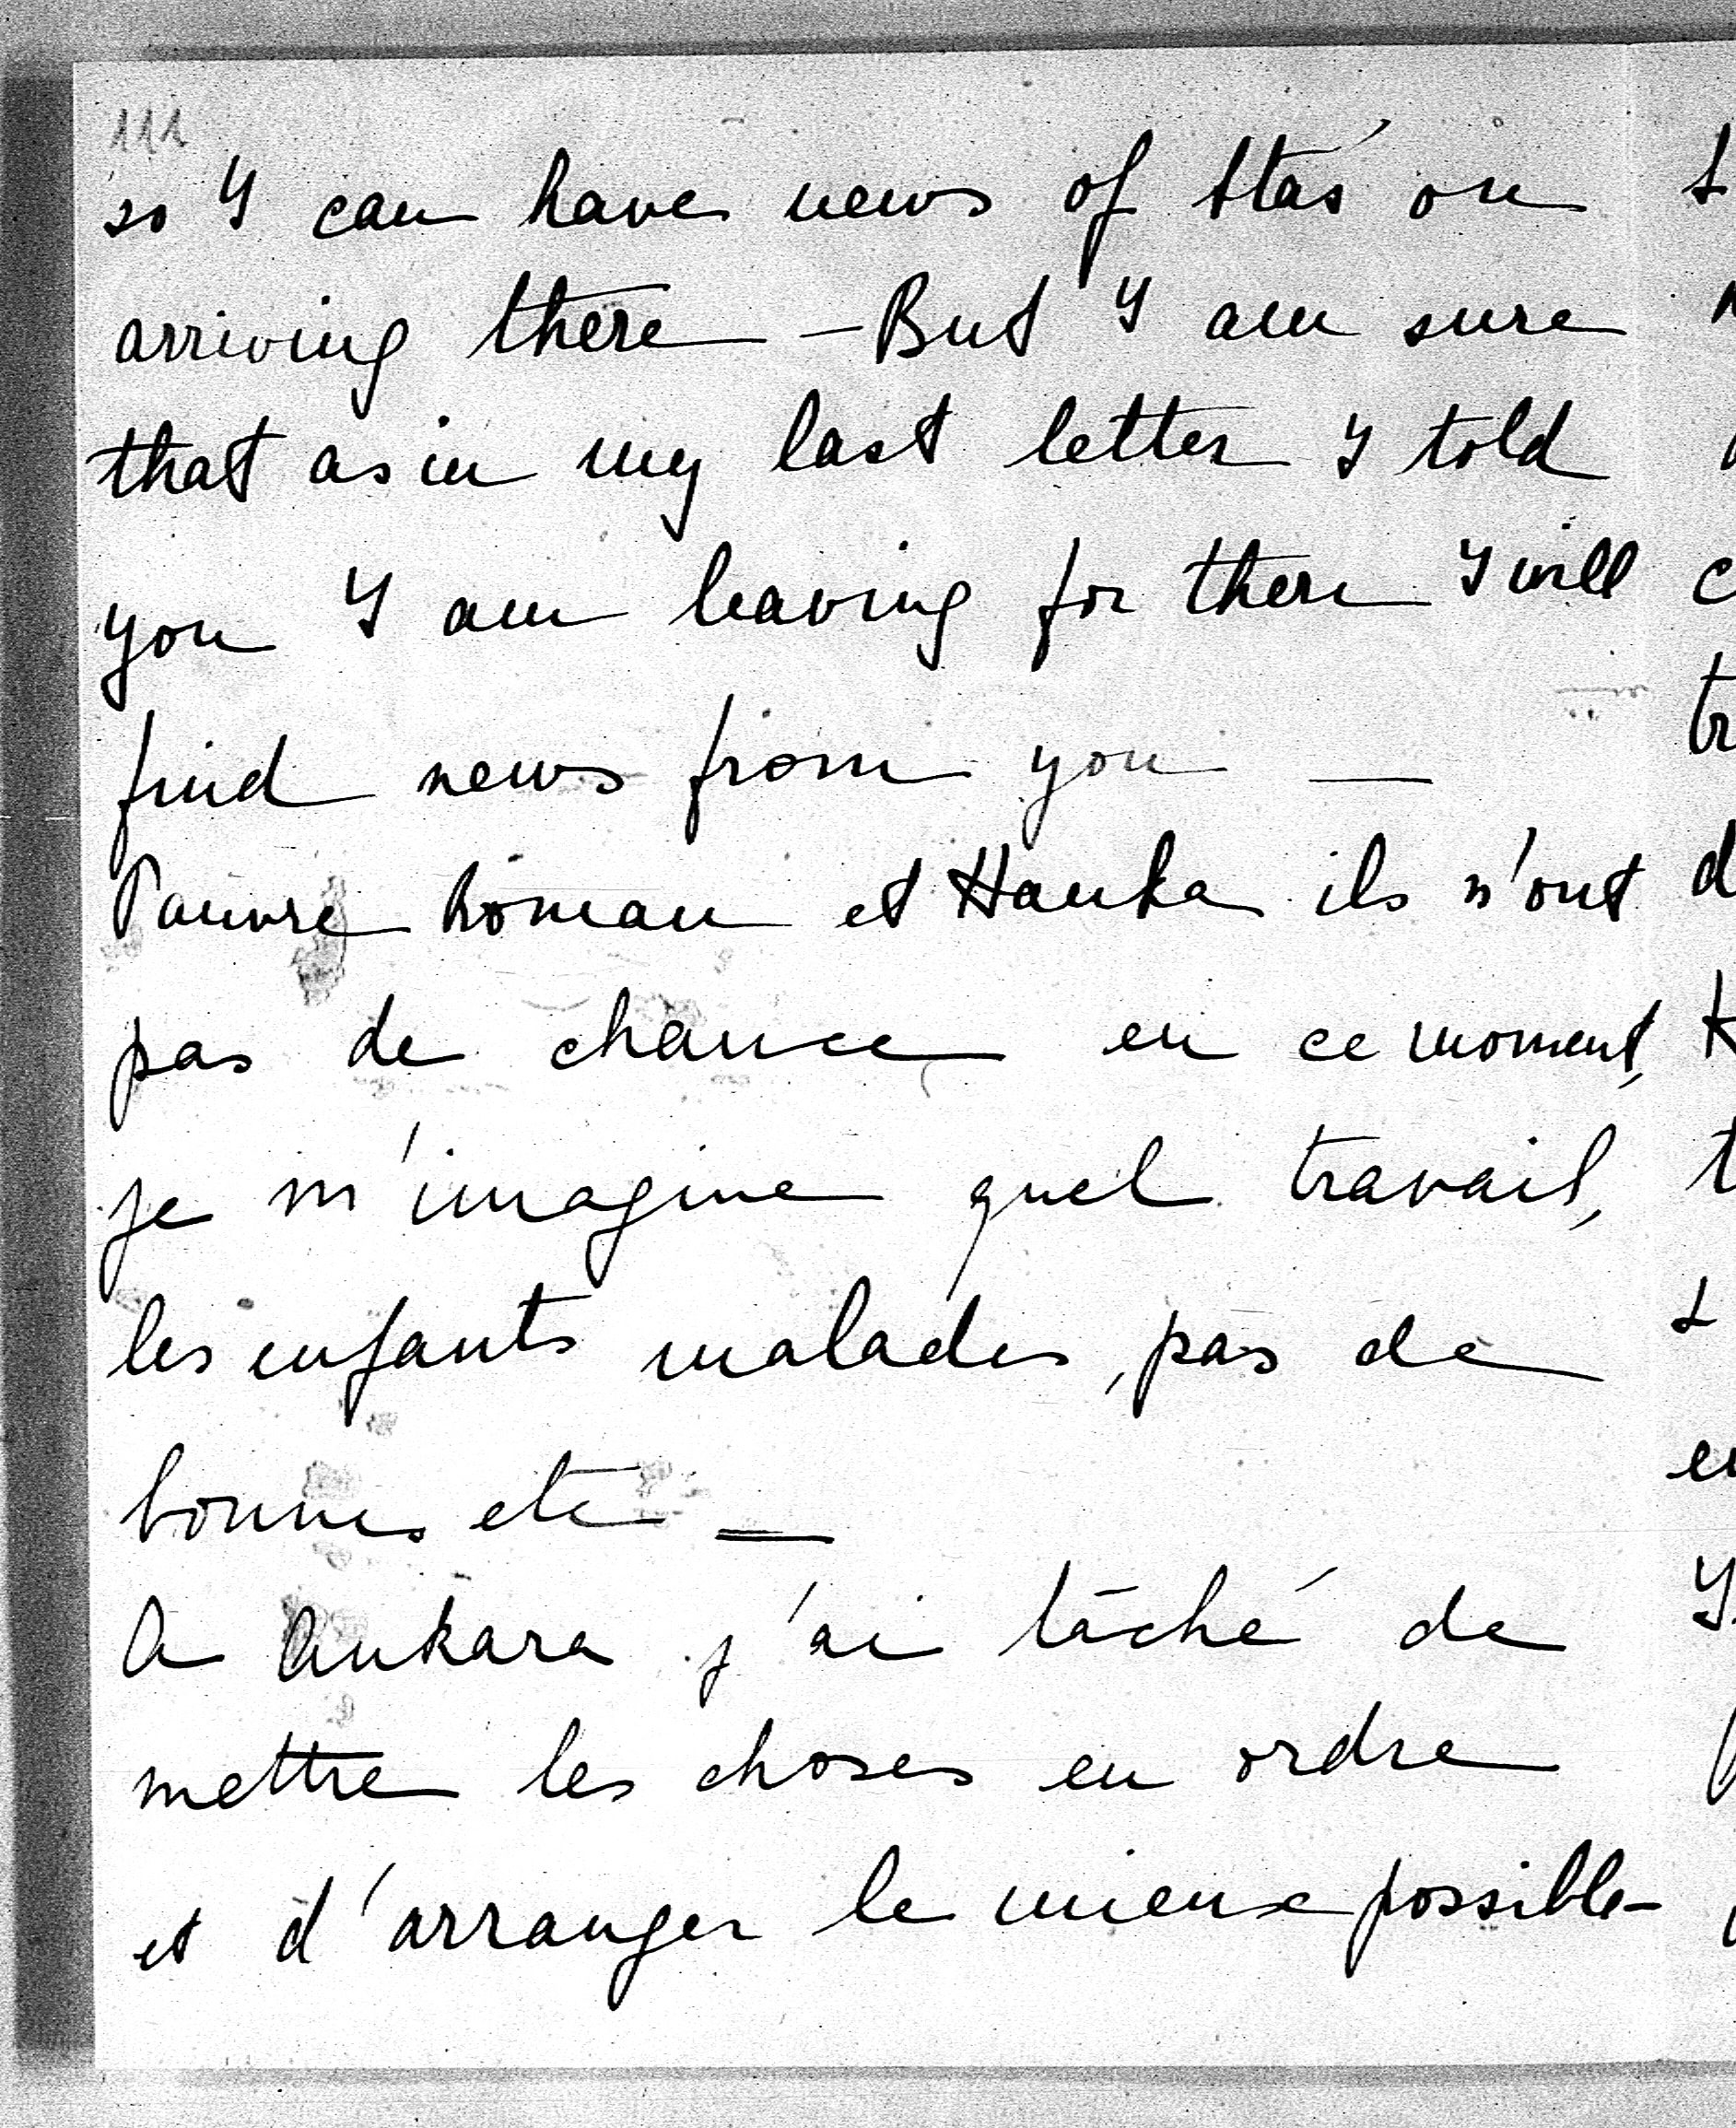 111
so I can have news of Staś on
arriving there — But I am sure
that as in my last letter I told
you I am leaving for there I will
find news from you —
Pauvre Roman et Hanka ils n'ont
pas de chance en ce moment,
je m'imagine quel travail,
les enfants malades, pas de
bonnes etc —
A Ankara j'ai tâché de
mettre les choses en ordre
et d'arranger le mieux possible